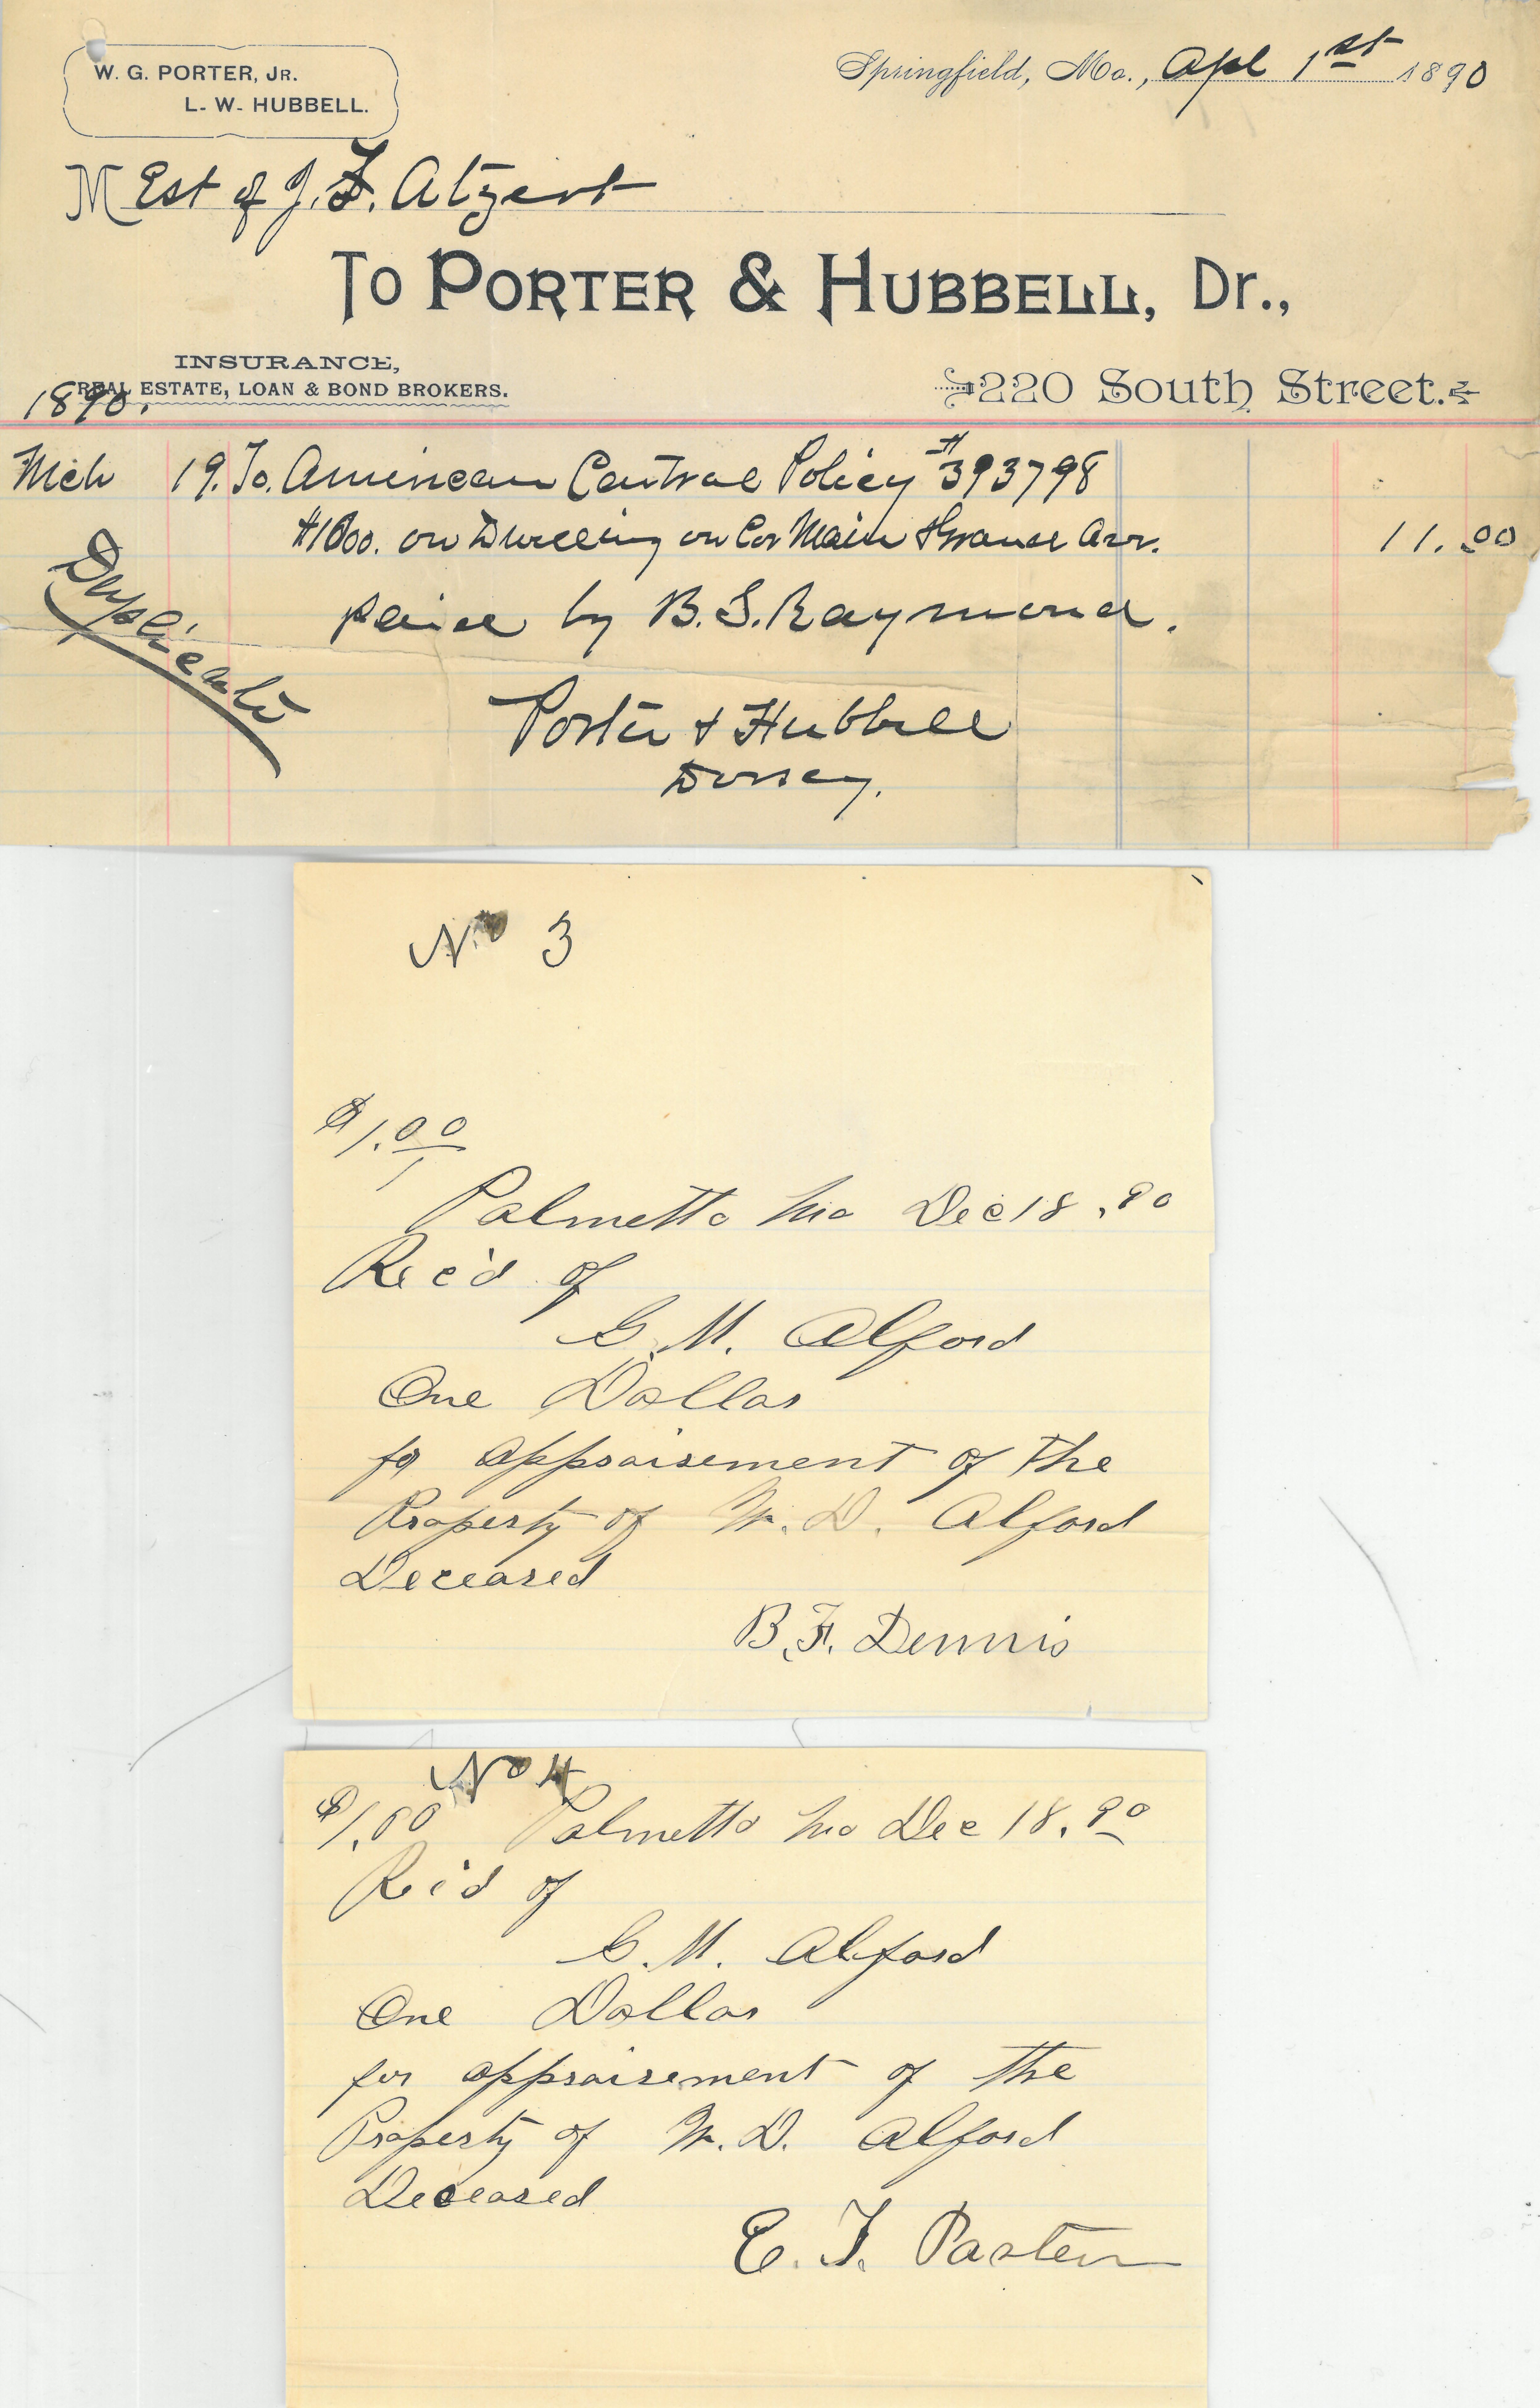 W. G. PORTER, JR.
L. W. HUBBELL.
Springfield, Mo., Apl 1st 1890
M Est of J. F. Atzert
To PORTER & HUBBELL, Dr.,
INSURANCE,
REAL ESTATE, LOAN & BOND BROKERS.
220 South Street.
1890.
Mch 19. To American Central Policy #393798
$1000. on Dwelling on Cor Main & Ave. 11.00
paid by B. S. Raymond.
Duplicate
Porter & Hubbell
Dorsey.
No 3
$1.00
Palmetto Mo Dec 18, 90
Rec'd of
G. M. Alford
One Dollar
for appraisement of the
Property of W. D. Alford
Deceased
B. F. Dennis
No 4
$1.00 Palmetto Mo Dec 18, 90
Rc'd of
G. M. Alford
One Dollar
for appraisement of the
Property of W. D. Alford
Deceased
E. T.